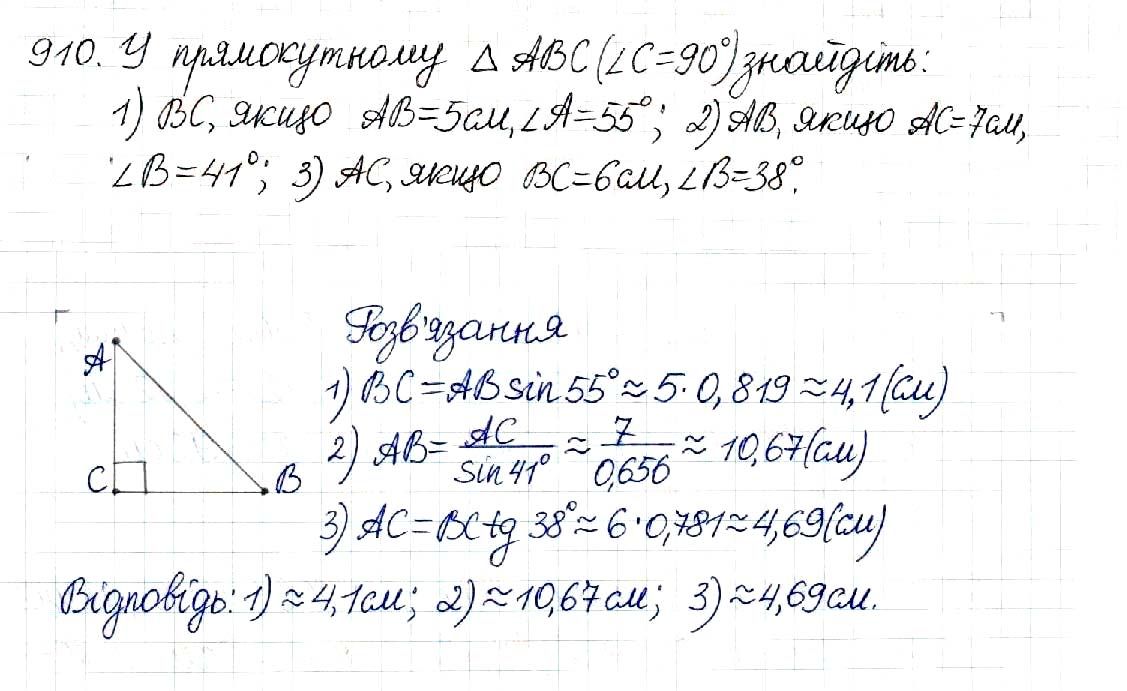 910. У прямокутному △ ABC (∠C=90°) знайдіть:
1) BC, якщо AB=5см, ∠A=55°; 2) AB, якщо AC=7см,
∠B=41°; 3) AC, якщо BC=6см, ∠B=38°.
Розв'язання
A
C
B
1) BC=AB sin 55°≈5·0,819≈4,1(см)
2) AB= AC/sin 41° ≈ 7/0,656 ≈ 10,67(см)
3) AC=BC tg 38°≈6·0,781≈4,69(см)
Відповідь: 1)≈4,1см; 2)≈10,67см; 3)≈4,69см.